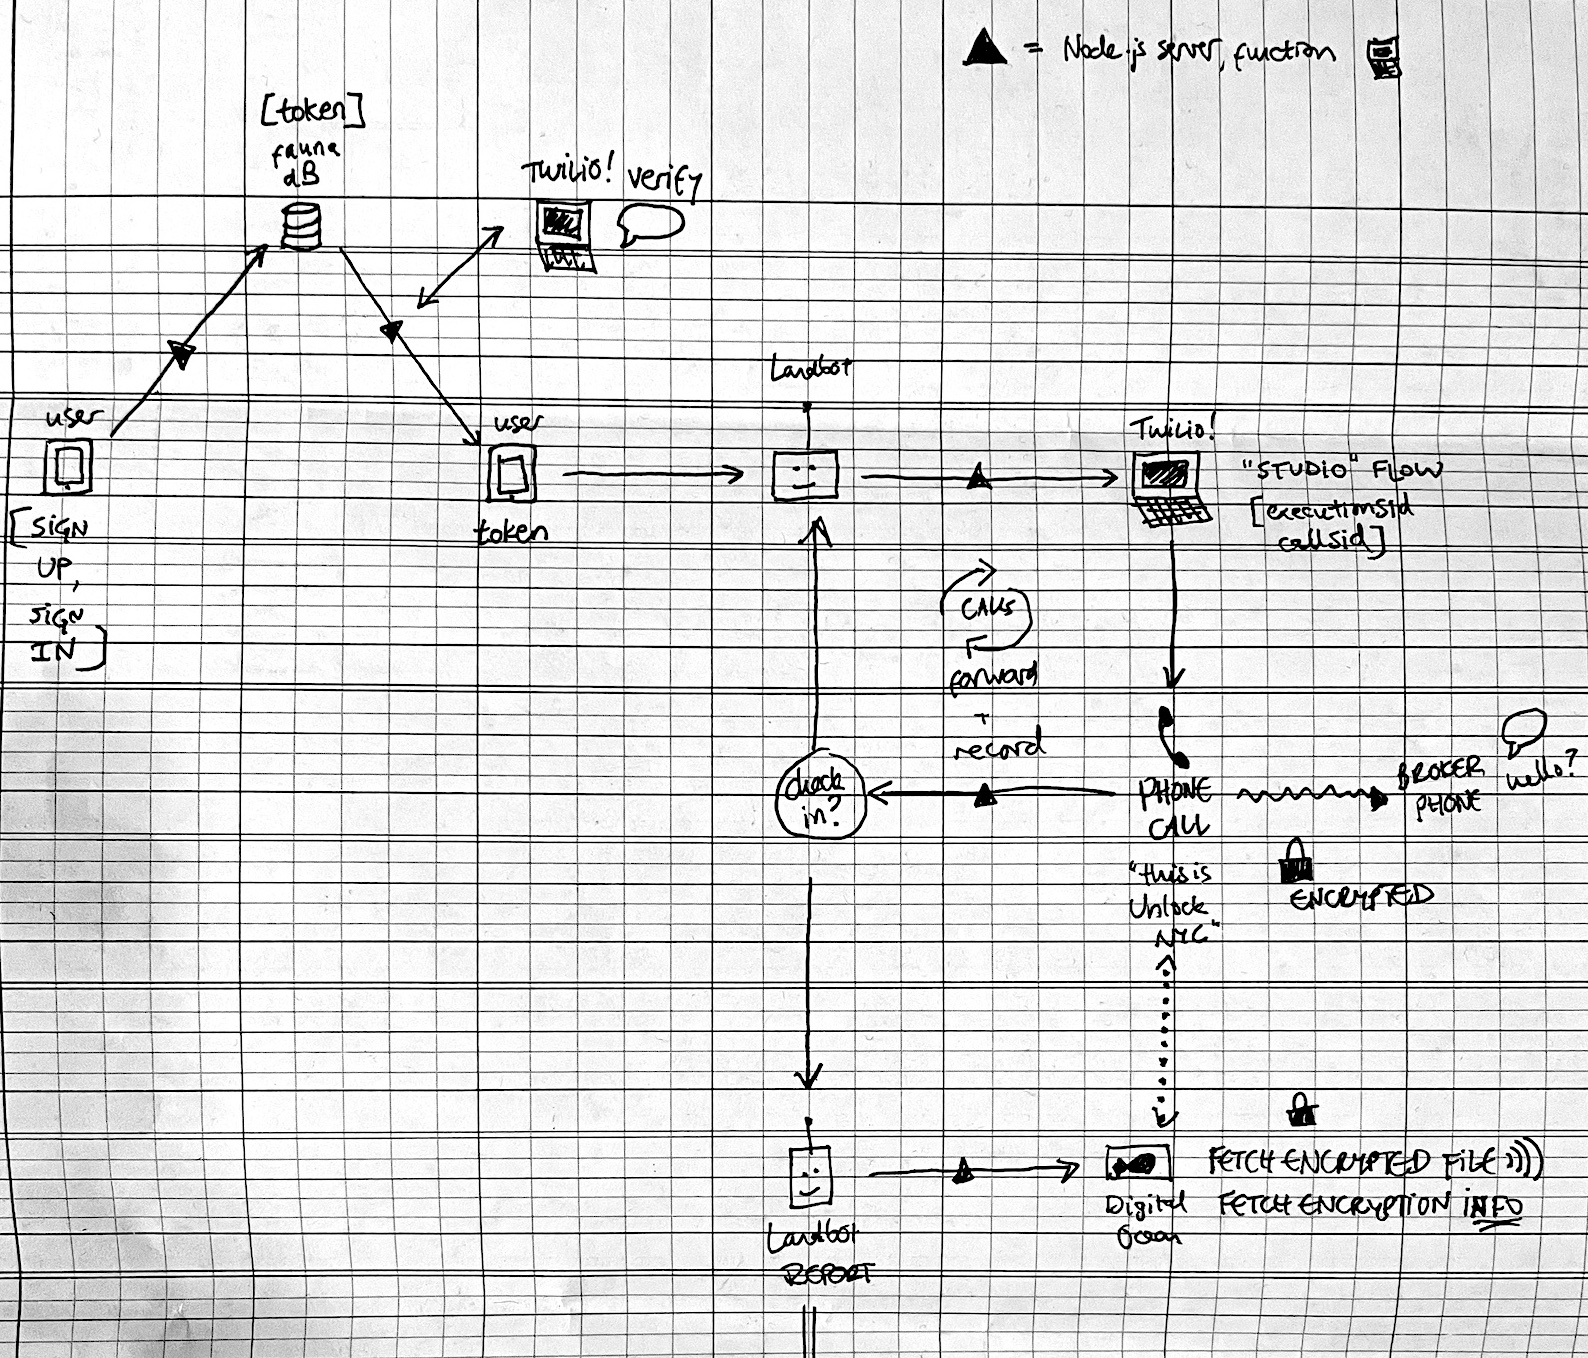 ▲ = Node.js server, function
[token]
fauna
dB
Twilio! verify
Landbot
user
[SIGN
UP,
SIGN
IN]
user
token
Twilio!
"STUDIO" FLOW
[executionsid
callsid]
CALLS
forward
+
record
check
in?
PHONE
CALL
"this is
Unlock
NYC"
BROKER
PHONE
hello?
ENCRYPTED
Landbot
REPORT
Digital
Ocean
FETCH ENCRYPTED FILE))))
FETCH ENCRYPTION INFO